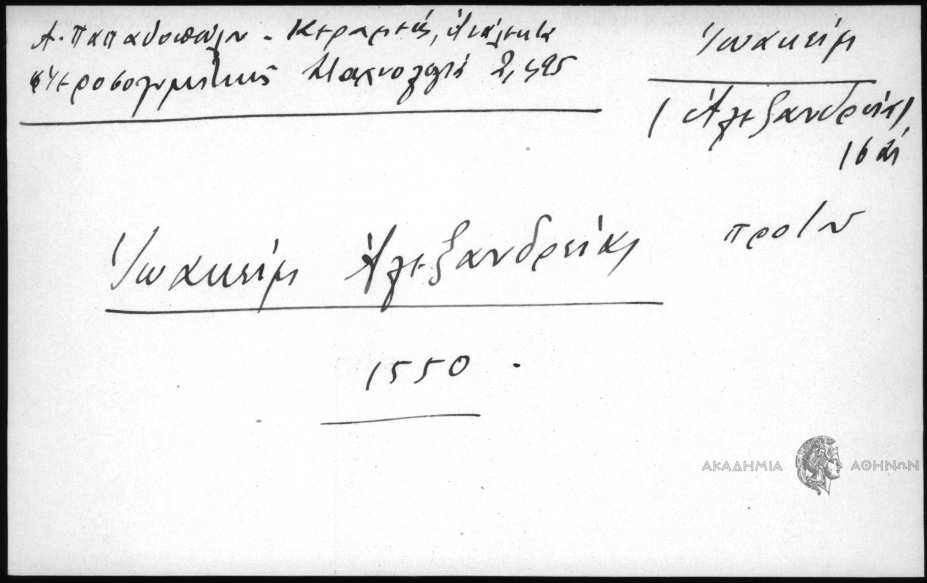 Α. Παπαδοπούλου - Κεραμεύς, Ἀνάλεκτα
Ἱεροσολυμιτικῆς Σταχυολογία 2, 495
Ἰωακείμ
(Ἀλεξανδρείας)
16 αἰ
πρωτ
Ἰωακείμ Ἀλεξανδρείας
1550.
ΑΚΑΔΗΜΙΑ ΑΘΗΝΩΝ